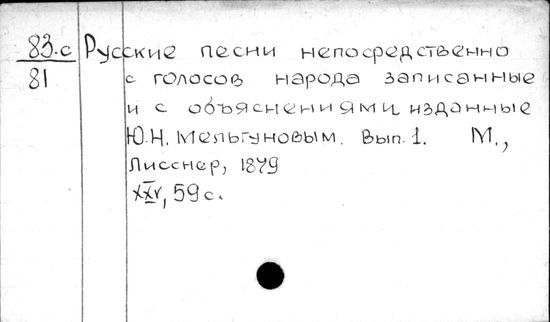 83.с Русские песни непосредственно
81 с голосов народа записанные
и с объяснениями изданные
Ю.Н. Мельгуновым. Вып. 1. М.,
Лисснер, 1879
XXIV, 59 с.